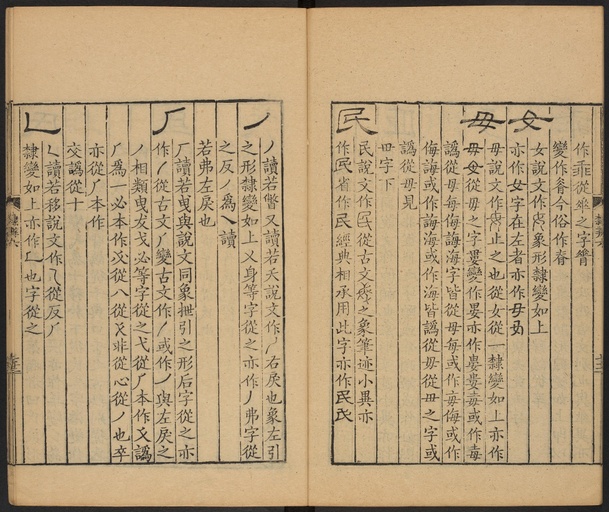 作乖從之字
變作脊今俗作脊
女
女說文作象形隸變如上
亦作女字在左者亦作
毋
毋說文作止之也從女從一隸變如上亦作
毋從毋之字婁變作婁亦或作婁毒或作毒
譌從母每侮誨海字皆從母每或作每侮或作
侮誨或作誨海或作海皆譌從毋從毋之字或
譌從毋見
毌字下
民
民說文作從古文之象筆迹小異亦
作民省作民經典相承用此字亦作民
丿
丿讀若瞥又讀若夭說文作丿右戾也象左引
之形隸變如上乂身等字從之亦作丿弗字從
之反丿為讀
若弗左戾也
厂
厂讀若曳與說文同象抴引之形后字從之亦
作丿從古文變古文作或作丿與左戾之
丿相類曳犮弋必等字從之弋從厂本作譌
厂為一必本作從八從弋非從心從丿也卒
亦從厂本作
交譌從十
乚
乚讀若移說文作乁從反厂
隸變如上亦作乚也字從之